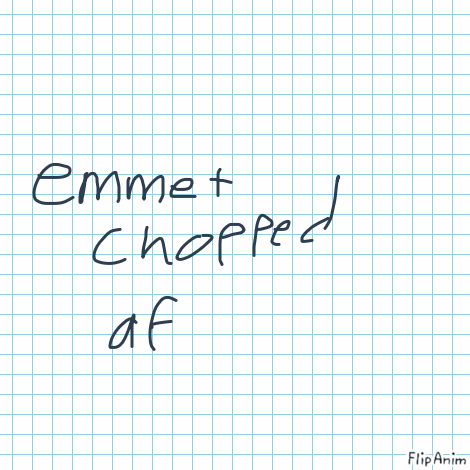 emmet
chopped
af
FlipAnim